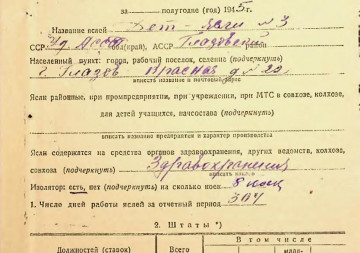 за — полугодие (год) 1945г.
Название яслей Дет-ясли №3
ССР Уд. АССР обл(край), АССР Глазовский район
Населенный пункт: город, рабочий поселок, селение (подчеркнуть)
г. Глазов Красная д № 20.
вписать название и почтовый адрес
Ясли районные, при промпредприятии, при учреждении, при МТС в совхозе, колхозе,
для детей учащихся, начсостава (подчеркнуть)
вписать название предприятия и характер производства
Ясли содержатся на средства органов здравоохранения, других ведомств, колхоза,
совхоза (подчеркнуть) Здравохранения
вписать каких
Изолятор: есть, нет (подчеркнуть) на сколько коек 8 коек
1. Число дней работы яслей за отчетный период 304
2. Штаты*)
Должностей (ставок)
Всего
В том числе